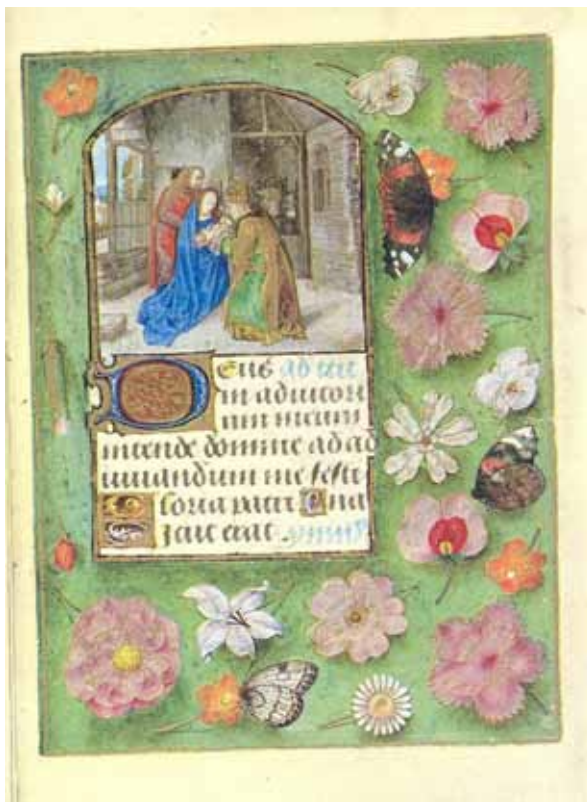 Deus ad
in adiutori
um meum
intende domine ad ad
iuuandum me festi
Gloria patri na
Sicut erat